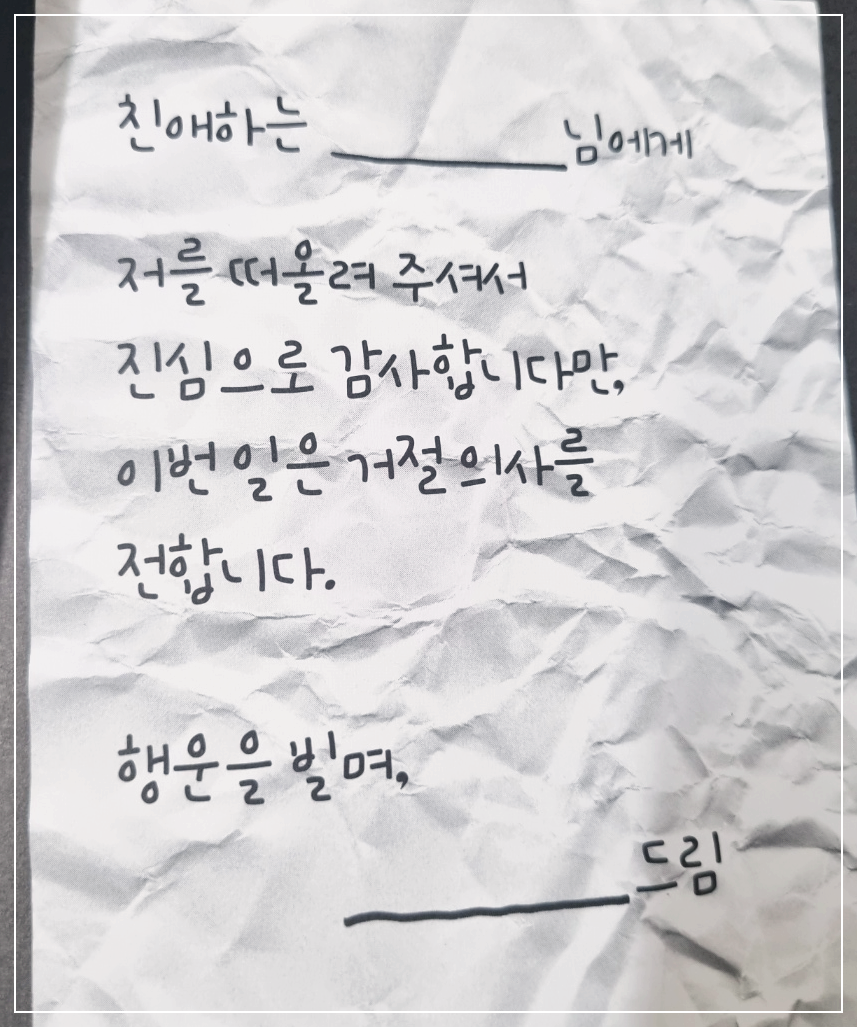 친애하는 __________님에게
저를 떠올려 주셔서
진심으로 감사합니다만,
이번 일은 거절의사를
전합니다.
행운을 빌며,
__________드림